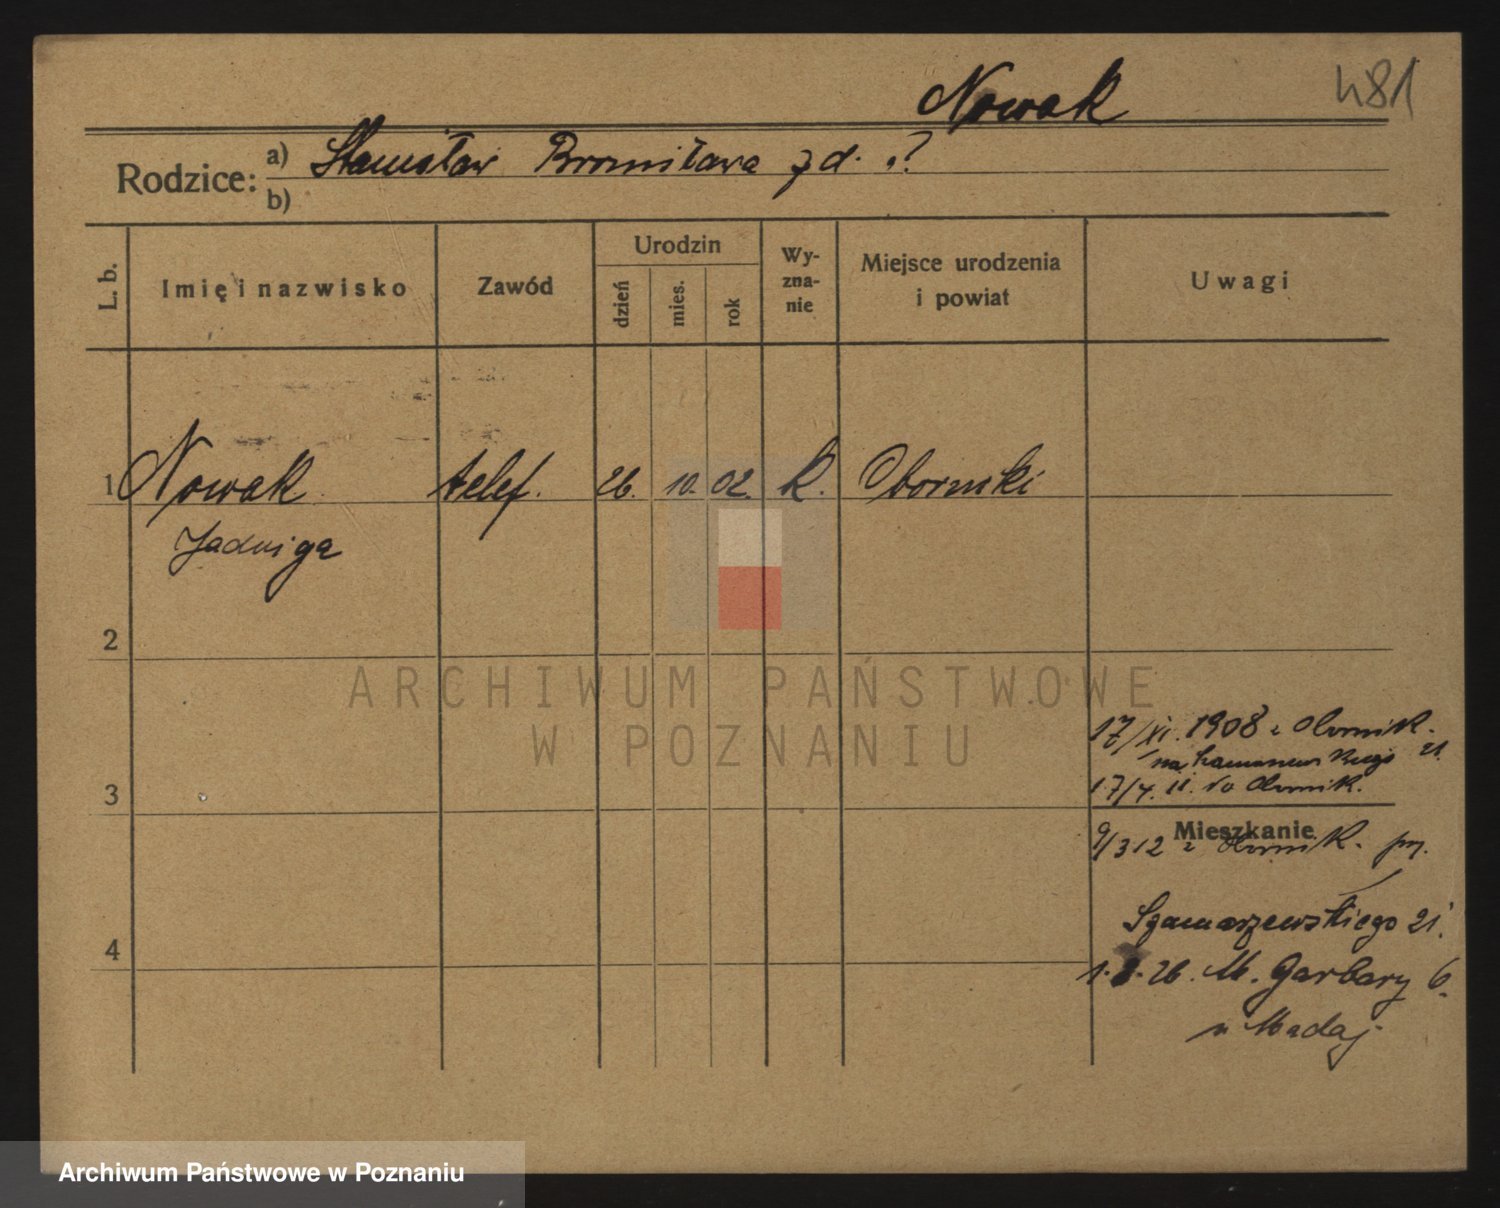 Nowak
481
Rodzice: a) Stanisław Bronisława z d. ?
b)
L. b.
Imię i nazwisko
Zawód
Urodzin
dzień
mies.
rok
Wy-
zna-
nie
Miejsce urodzenia
i powiat
Uwagi
1 Nowak telef. 26. 10. 02. k. Oborniki
Jadwiga
2
ARCHIWUM PAŃSTWOWE
W POZNANIU
17/XI. 1908 z Obornik.
na 21.
17/4. 11. do Obornik.
3
Mieszkanie
9/3 12 z Obornik.
Szamarzewskiego 21.
4
26. M. Garbary 6.
u Madaj
Archiwum Państwowe w Poznaniu